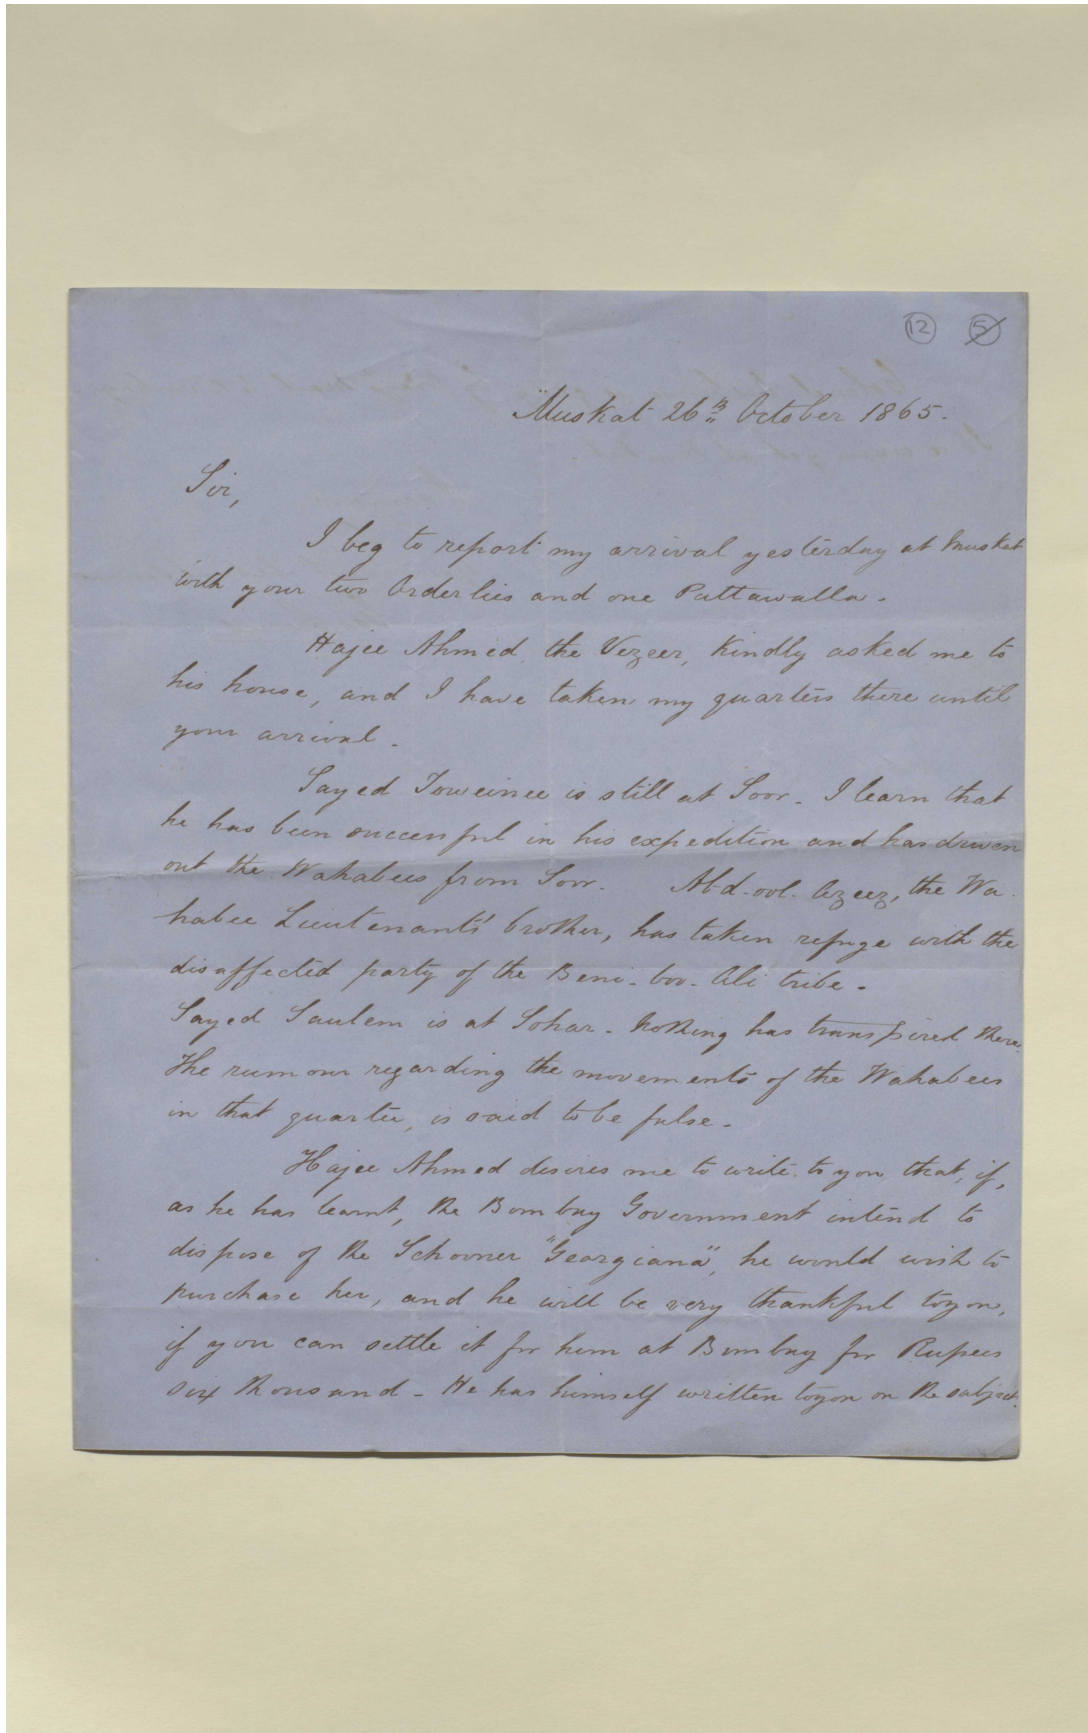 12 5
Muskat 26th October 1865.
Sir,
I beg to report my arrival yesterday at Muskat
with your two Orderlies and one Pattawalla.
Hajee Ahmed, the Vezeer, Kindly asked me to
his house, and I have taken my quarters there until
your arrival.
Sayed Toweinee is still at Soor. I learn that
he has been successful in his expedition and has driven
out the Wahabees from Soor. Abd-ool-Azeez, the Wa-
habee Lieutenants' brother, has taken refuge with the
disaffected party of the Beni-boo-Ali tribe.
Sayed Saulem is at Sohar. Nothing has transpired there.
The rumour regarding the movements of the Wahabees
in that quarter, is said to be false.
Hajee Ahmed desires me to write to you that, if,
as he has learnt, the Bombay Government intend to
dispose of the Schooner "Georgiana", he would wish to
purchase her, and he will be very thankful to you,
if you can settle it for him at Bombay for Rupees
six thousand - He has himself written to you on the subject.